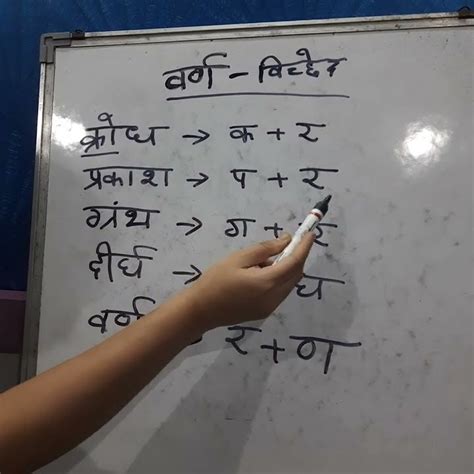 वर्ण - विच्छेद
क्रोध → क + र
प्रकाश → प + र
ग्रंथ → ग + र
दीर्घ → घ
वर्ण र + ण